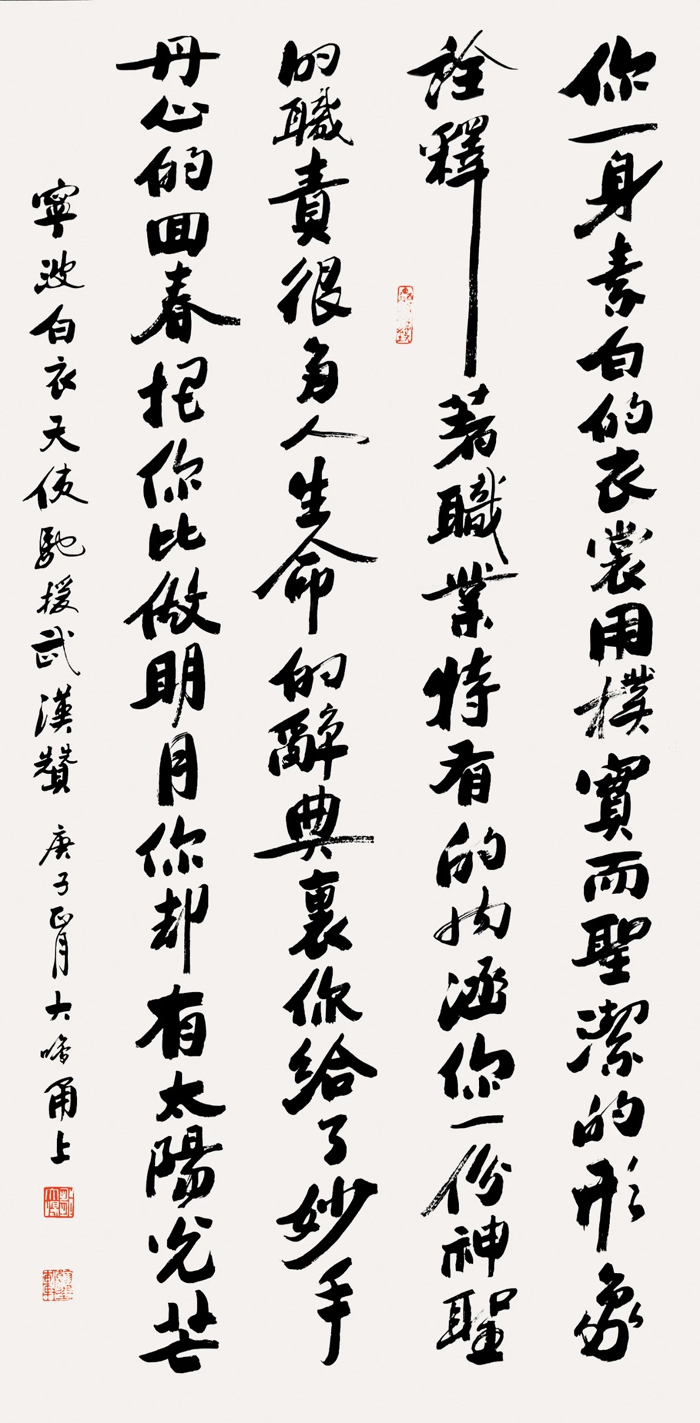 你一身素白的衣裳用樸實而聖潔的形象
詮釋著職業特有的内涵你一份神聖
的職責很多人生命的辭典裏你給了妙手
丹心的回春把你比做明月你却有太陽光芒
寧波白衣天使馳援武漢贊 庚子正月 大 甬上